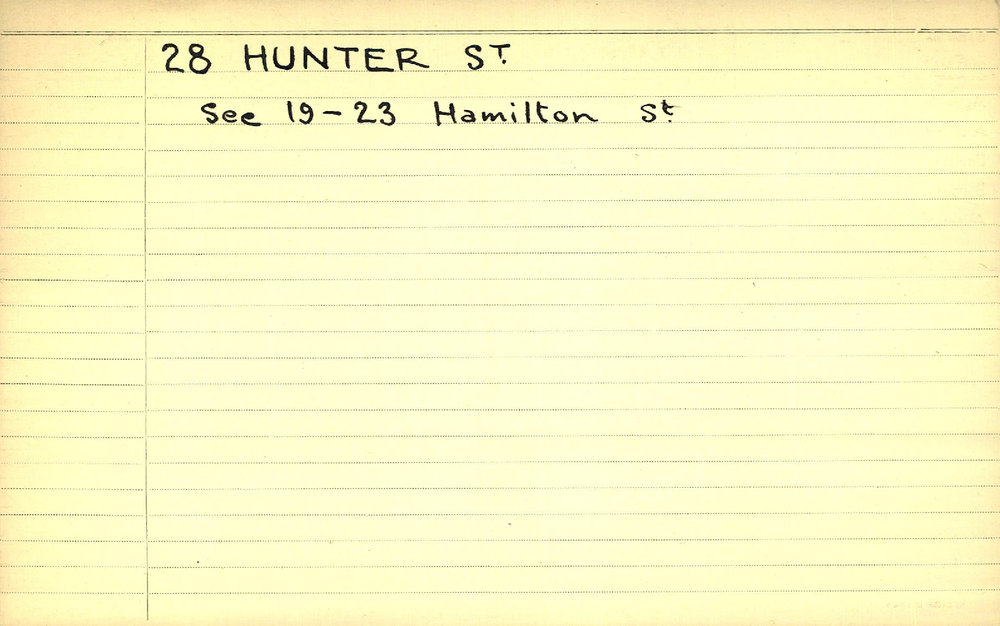 28 HUNTER ST.
See 19-23 Hamilton St.